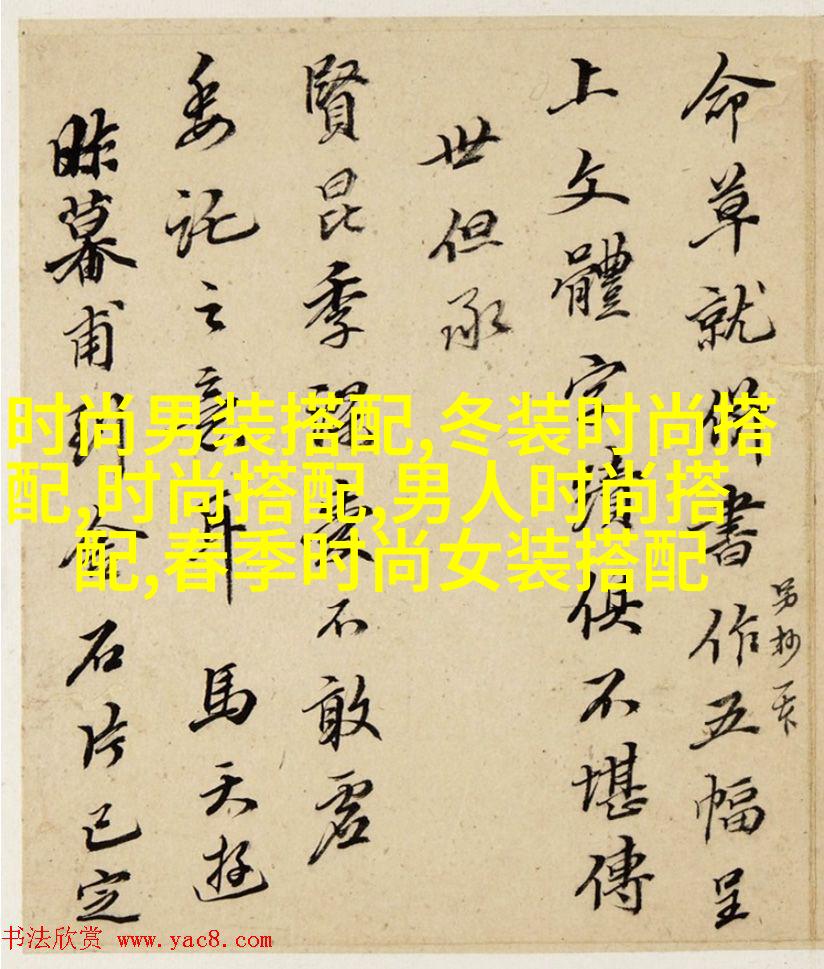 命草就併書作五幅呈
另抄一
上文體字俱不堪傳
世但承
賢昆季不敢虛
委託之意耳馬天遊
昨暮甫到金石片已定
时尚男装搭配,冬装时尚搭
配,时尚搭配,男人时尚搭
配,春季时尚女装搭配
书法欣赏 www.yac8.com